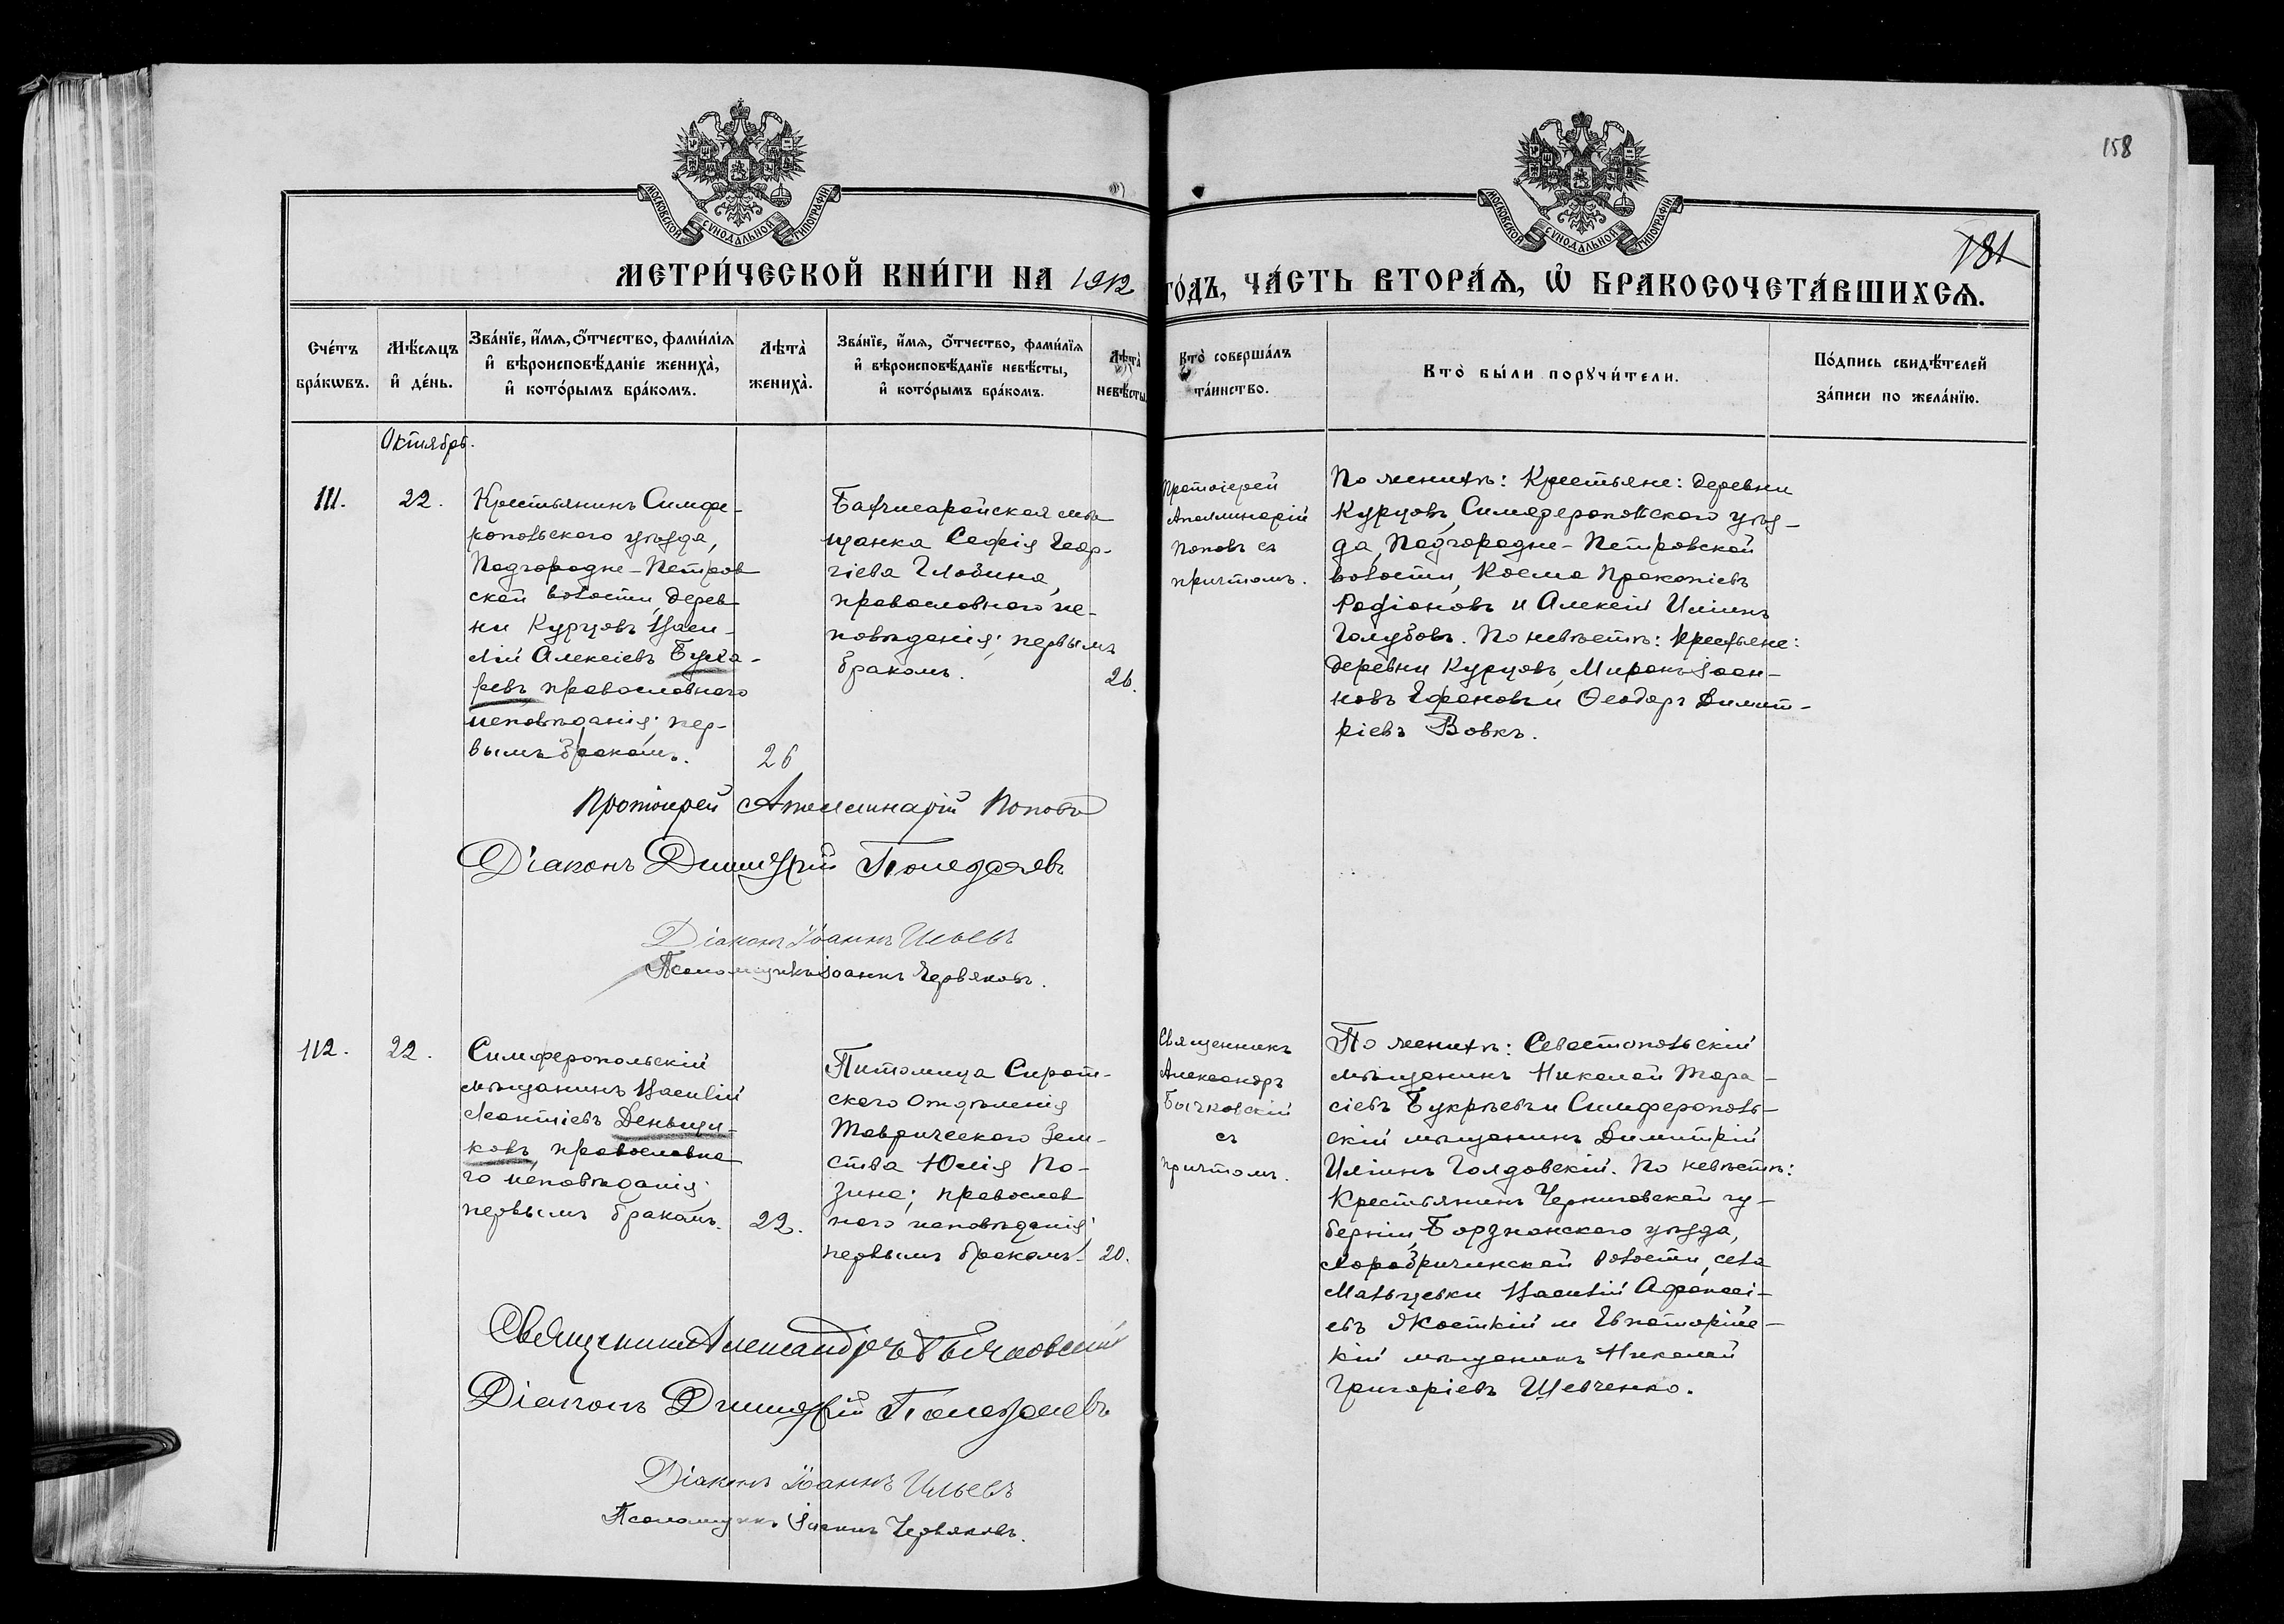 158
181
МОСКОВСКОЙ СУНОДАЛЬНОЙ ТИПОГРАФІИ
МОСКОВСКОЙ СУНОДАЛЬНОЙ ТИПОГРАФІИ
МЕТРИ́ЧЕСКОЙ КНИ́ГИ НА 1912
ГО́ДЪ, ЧА́СТЬ ВТОРА́Ѧ, Ѡ҆ БРАКОСОЧЕТА́ВШИХСѦ.
Сче́тъ
бра́кѡвъ.
Мѣ́сѧцъ
и҆ де́нь.
Зва́нїе, и҆́мѧ, ѻ҆́тчество, фами́лїѧ
и҆ вѣроисповѣ́данїе жениха̀,
и҆ кото́рымъ бра́комъ.
Лѣта̀
жениха̀.
Зва́нїе, и҆́мѧ, ѻ҆́тчество, фами́лїѧ
и҆ вѣроисповѣ́данїе невѣ́сты,
и҆ кото́рымъ бра́комъ.
Лѣта̀
невѣ́сты
Кто̀ соверша́лъ
та́инство.
Кто̀ бы́ли порꙋчи́тели.
По́дпись свидѣ́телей
за́писи по жела́нїю.
Октябрь.
111.
22.
Крестьянинъ Симфе-
ропольскаго уѣзда,
Подгородне-Петров
ской волости, дерев
ни Курцовъ Васи-
лій Алексіевъ Булга-
ревъ, православнаго
исповѣданія; пер-
вымъ бракомъ.
26
Бахчисарайская мѣ
щанка Софія Геор-
гіева Глобина,
православнаго ис-
повѣданія; первымъ
бракомъ.
26.
Протоіерей
Аполлинарій
Поповъ съ
причтомъ.
По женихѣ: Крестьяне: деревни
Курцовъ, Симферопольскаго уѣз-
да, Подгородне-Петровской
волости, Косма Прокопіевъ
Родіоновъ и Алексій Иліинъ
Голубовъ. По невѣстѣ: крестьяне:
деревни Курцовъ, Миронъ Іоан-
новъ и Ѳеодоръ Димит-
ріевъ Вовкъ.
Протоіерей Аполлинарій Поповъ
Діаконъ Димитрій Полежаевъ
Діаконъ Іоаннъ Ильевъ
Псаломщикъ Іоаннъ Червяковъ.
112.
22.
Симферопольскій
мѣщанинъ Василій
Леонтіевъ Деньщи-
ковъ, православна
го исповѣданія;
первымъ бракомъ.
22.
Питомица Сирот-
скаго Отдѣленія
Таврическаго Зем-
ства Юлія По-
зина; православ
наго исповѣданія;
первымъ бракомъ.
20.
Священникъ
Александръ
Бычковскій
съ
причтомъ.
По женихѣ: Севастопольскій
мѣщанинъ Николай Тара-
сіевъ и Симферополь-
скій мѣщанинъ Димитрій
Иліинъ Голдовскій. По невѣстѣ:
Крестьянинъ Черниговской гу-
берніи, Борзнанскаго уѣзда,
волости, села
Василій Афанасі-
евъ и Евпаторійс-
кій мѣщанинъ Николай
Григоріевъ Шевченко.
Священникъ Александръ Бычковскій
Діаконъ Димитрій Полежаевъ
Діаконъ Іоаннъ Ильевъ
Псаломщикъ Іоаннъ Червяковъ.